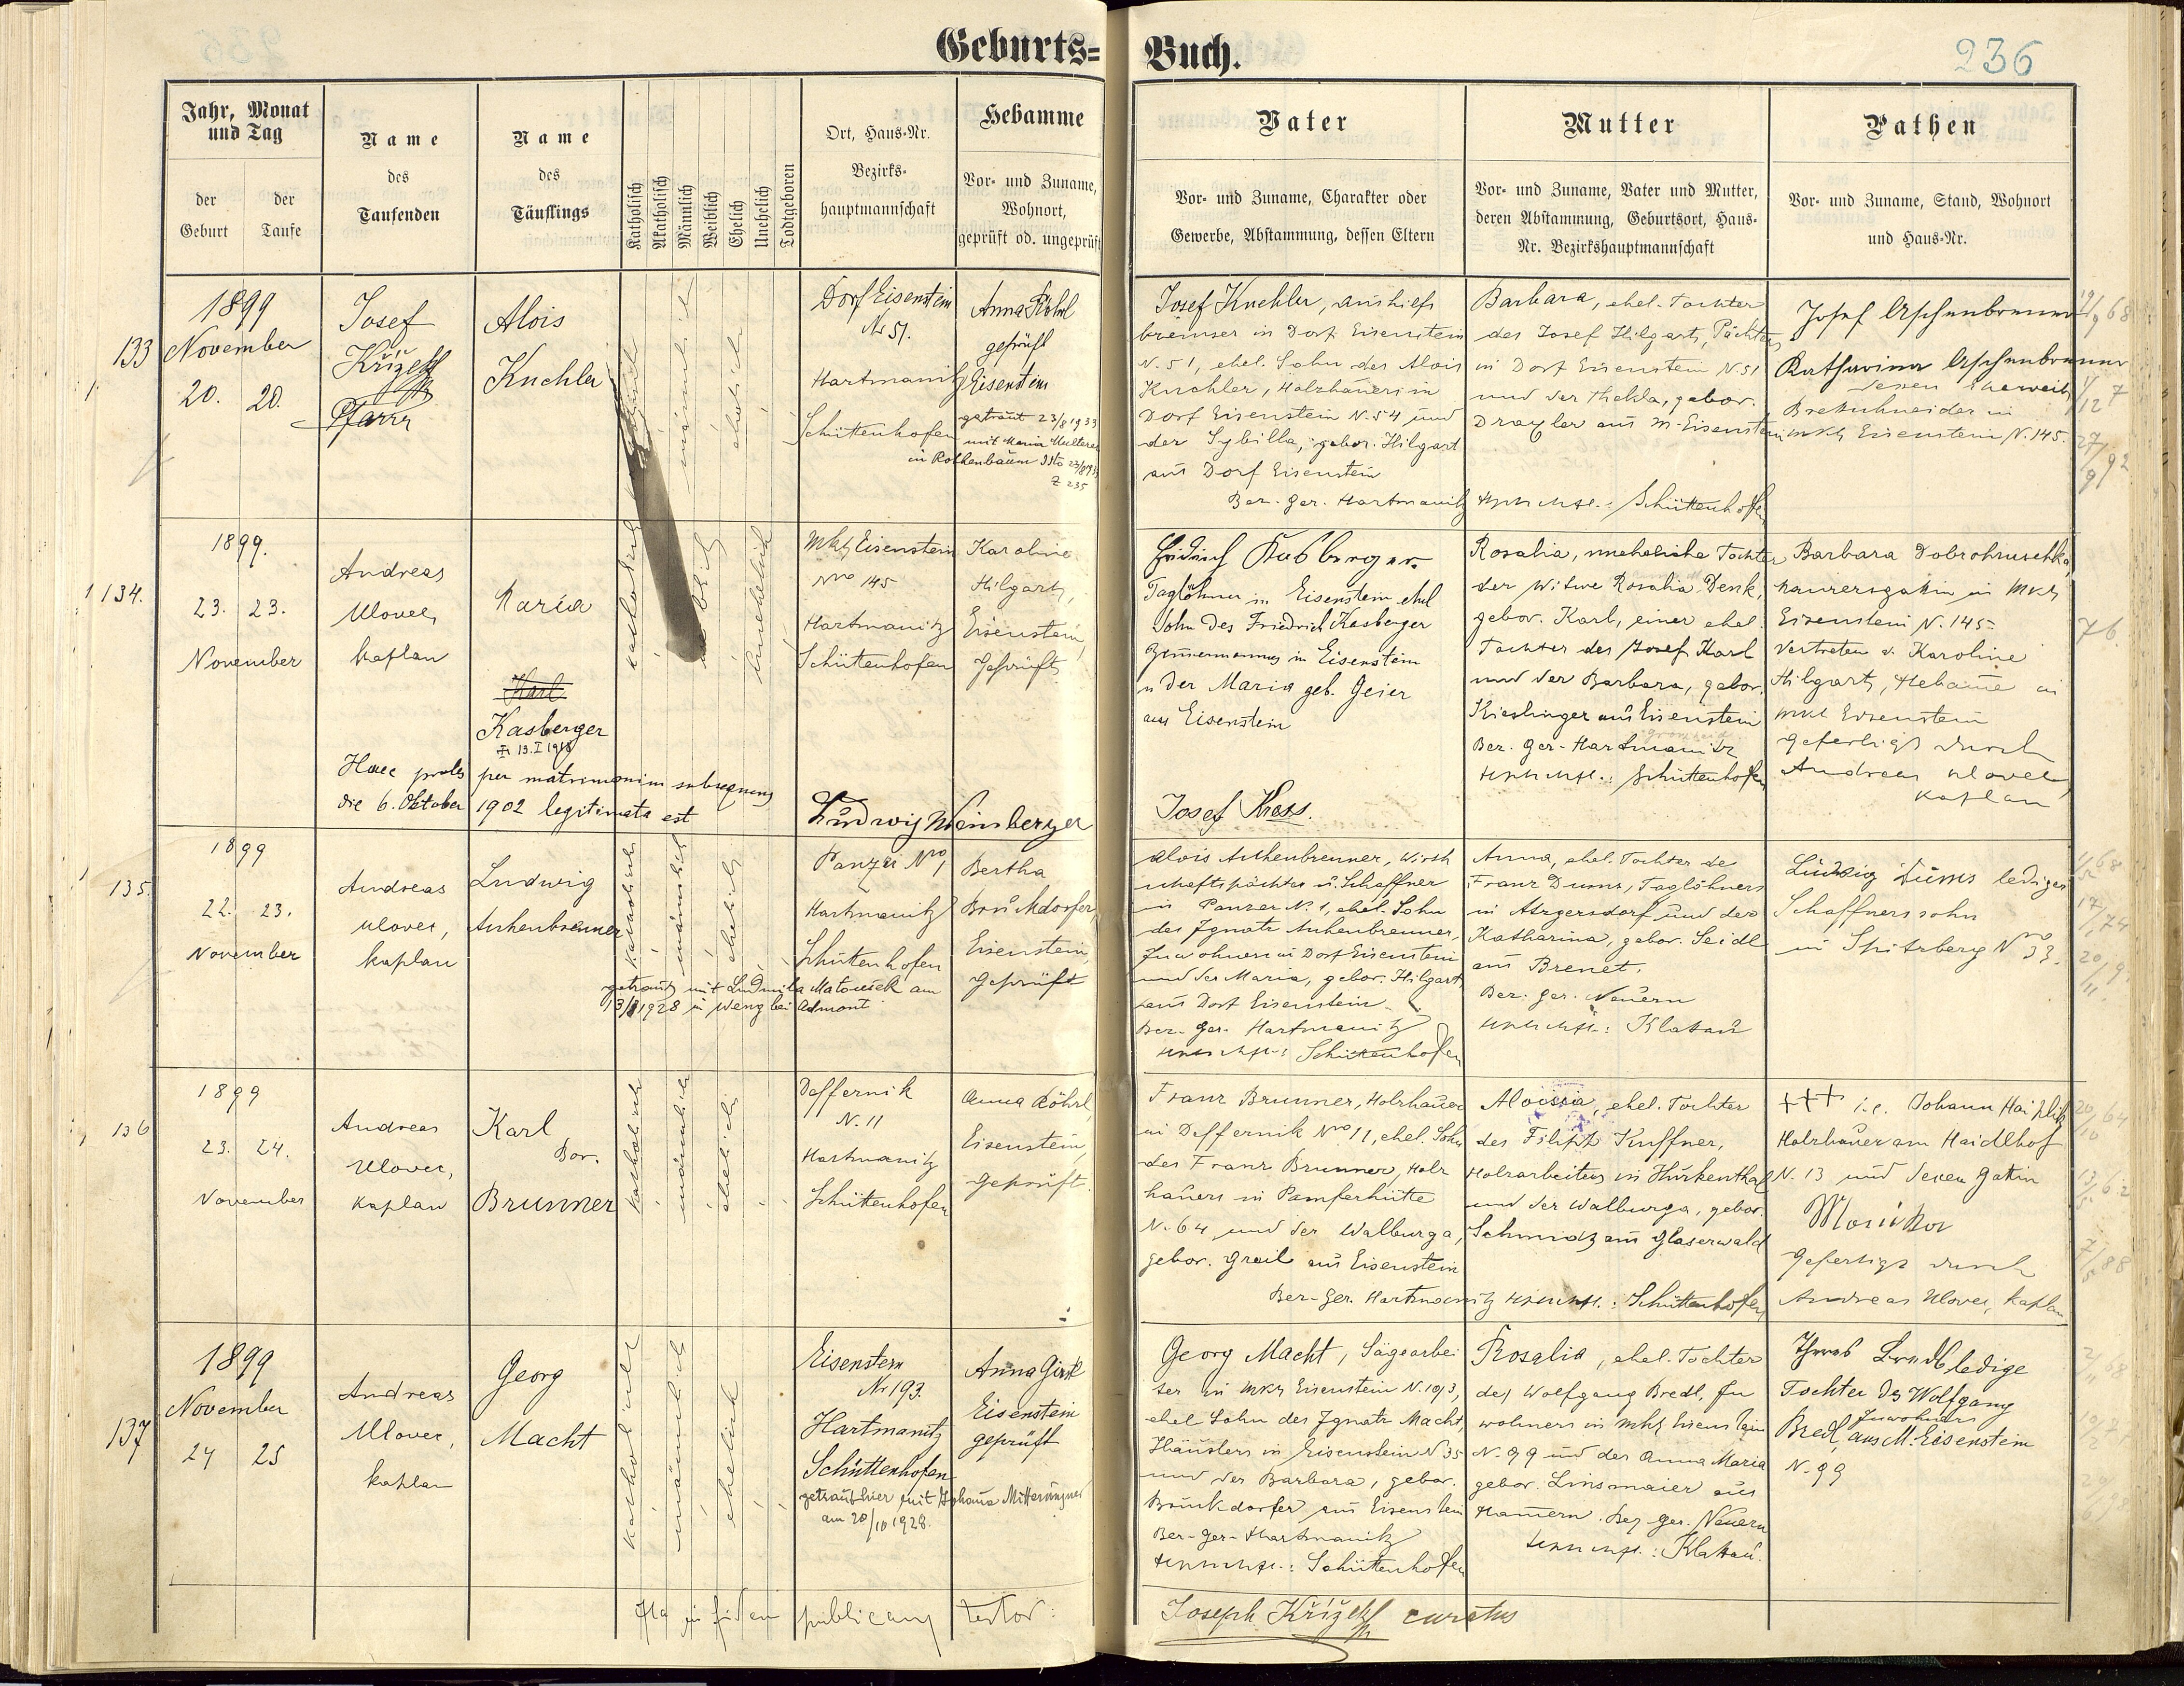 Geburts=
Buch.
236
Jahr, Monat
und Tag
der
Geburt
der
Taufe
Name
des
Taufenden
Name
des
Täuflings
Katholisch
Akatholisch
Männlich
Weiblich
Ehelich
Unehelich
Todtgeboren
Ort, Haus-Nr.
Bezirks-
hauptmannschaft
Hebamme
Vor- und Zuname,
Wohnort,
geprüft od. ungeprüft
Vater
Vor- und Zuname, Charakter oder
Gewerbe, Abstammung, dessen Eltern
Mutter
Vor- und Zuname, Vater und Mutter,
deren Abstammung, Geburtsort, Haus-
Nr. Bezirkshauptmannschaft
Pathen
Vor- und Zuname, Stand, Wohnort
und Haus-Nr.
133
1899
November
20. 20.
Josef
Křížek
Pfarrer
Alois
Kuchler
männlich
ehelich
Dorf Eisenstein
Nr 51.
Hartmanitz
Schüttenhofen
Anna Röhrl
geprüft
Eisenstein
getraut 23/8 1933
mit Maria Multerer
in Rothenbaum
Z 235
Josef Kuchler, Aushilfs
bremser in Dorf Eisenstein
N. 51, ehel. Sohn des Alois
Kuchler, Holzhauers in
Dorf Eisenstein N. 54 und
der Sybilla, gebor. Hilgart
aus Dorf Eisenstein
Bez. Ger. Hartmanitz
Barbara, ehel. Tochter
des Josef Hilgart, Pächters
in Dorf Eisenstein N. 51
und der Thekla, gebor.
Draxler aus M. Eisenstein
Schüttenhofen
Josef Aschenbrenner
Katharina Aschenbrenner
dessen Eheweib
Bretschneider in
Mkt Eisenstein N. 145.
134.
1899.
23. 23.
November
Andreas
Ulovec,
Kaplan
Maria
Karl
Kasberger
13. I 1918
katholisch
weiblich
unehelich
Mkt Eisenstein
Nro 145
Hartmanitz
Schüttenhofen
Karoline
Hilgart,
Eisenstein,
Geprüft
Haec proles per matrimonium subsequens
die 6. Oktober 1902 legitimata est
Ludwig Weinberger
Friedrich Kasberger
Taglöhner in Eisenstein ehel
Sohn des Friedrich Kasberger
Zimmermannes in Eisenstein
u der Maria geb. Geier
aus Eisenstein
Josef Kress.
Rosalia, uneheliche Tochter
der Witwe Rosalia Denk,
gebor. Karl, einer ehel.
Tochter des Josef Karl
und der Barbara, gebor.
Kieslinger aus Eisenstein
Bez. Ger. Hartmanitz
Schüttenhofen
Barbara Dobrohruschka,
Maurersgattin in Mkt
Eisenstein N. 145
vertreten d. Karoline
Hilgart, Hebame in
Mkt Eisenstein
Gefertigt durch
Andreas Ulovec,
Kaplan
76
135.
1899
22. 23.
November
Andreas
Ulovec,
Kaplan
Ludwig
Aschenbrenner
katholisch
männlich
ehelich
Panzer Nro 1
Hartmanitz
Schüttenhofen
Bertha
Bruckdorfer,
Eisenstein,
Geprüft
getraut mit Ludmila Matoušek am
13/8 1928 in Weng bei Admont
Alois Aschenbrenner, Wirth
schaftspächter u. Schaffner
in Panzer N. 1, ehel. Sohn
des Ignatz Aschenbrenner,
Inwohners in Dorf Eisenstein
und der Maria, gebor. Hilgart
aus Dorf Eisenstein.
Bez. Ger. Hartmanitz
Schüttenhofen
Anna, ehel. Tochter de
Franz Dums, Taglöhners
in Atzgersdorf und der
Katharina, gebor. Seidl
aus Brenet.
Bez. Ger. Neuern
Klatau
Ludwig Dums lediger
Schaffnerssohn
in Spitzberg Nro 33.
136
1899
23. 24.
November
Andreas
Ulovec,
Kaplan
Karl
Bor.
Brunner
katholisch
männlich
ehelich
Deffernik
N. 11
Hartmanitz
Schüttenhofen
Anna Röhrl,
Eisenstein,
Geprüft.
Franz Brunner, Holzhauer
in Deffernik Nro 11, ehel. Sohn
des Franz Brunner, Holz
hauers in Pamferhütte
N. 64 und der Walburga,
gebor. Greil aus Eisenstein
Bez. Ger. Hartmanitz
Aloisia, ehel. Tochter
des Filipp Kuffner,
Holzarbeiters in Hurkenthal
und der Walburga, gebor.
Schmidt aus Glaserwald
Schüttenhofen
+++ i.e. Johann
Holzhauer am Haidlhof
N. 13 und dessen Gattin
Gefertigt durch
Andreas Ulovec, Kaplan
137
1899
November
24 25
Andreas
Ulovec,
Kaplan
Georg
Macht
katholisch
männlich
ehelich
Eisenstein
Nr 193.
Hartmanitz
Schüttenhofen
Anna Girstl
Eisenstein
geprüft
getraut hier mit Johana
am 20/10 1928.
Georg Macht, Sägearbei
ter in Mkt Eisenstein N. 193,
ehel Sohn des Ignatz Macht,
Häuslers in Eisenstein N 35
und der Barbara, gebor.
Bruckdorfer aus Eisenstein
Bez. Ger. Hartmanitz
Schüttenhofen
Rosalia, ehel. Tochter
des Wolfgang Bredl, In
wohners in Mkt Eisenstein
N. 99 und der Anna Maria
gebor. Linsmaier aus
Hamern. Bez. Ger. Neuern
Klattau.
Theres Bredl ledige
Tochter des Wolfgang
Inwohners
Bredl aus M. Eisenstein
N. 99
Ita in fidem publicam testor:
Joseph Křížek curatus